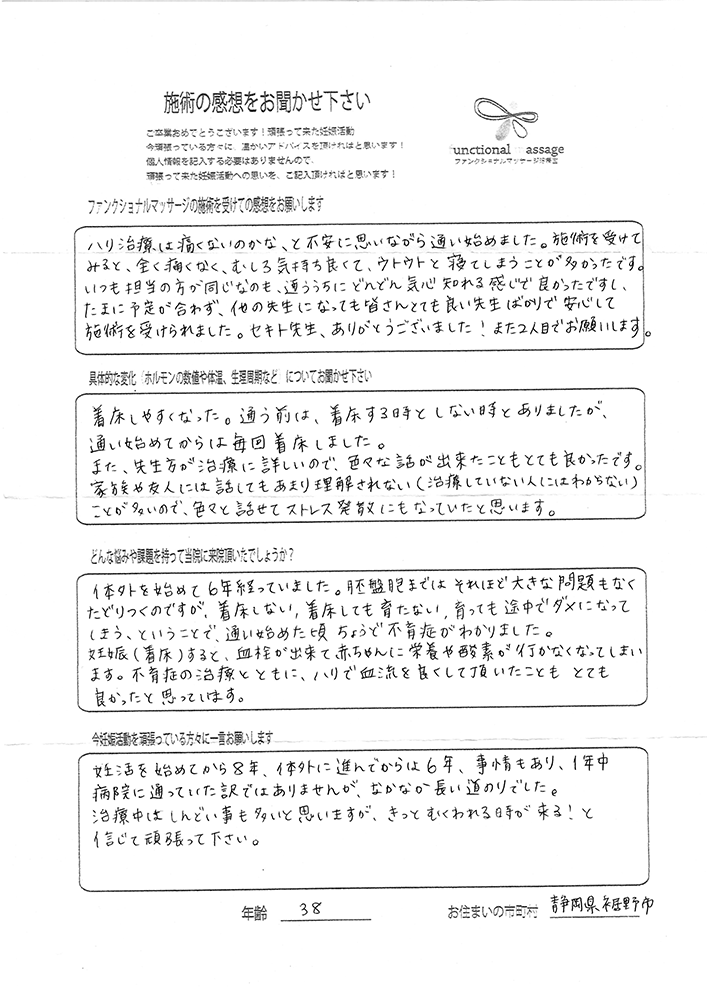 施術の感想をお聞かせ下さい
ご卒業おめでとうございます！頑張って来た妊娠活動
今頑張っている方々に、温かいアドバイスを頂ければと思います！
個人情報を記入する必要はありませんので、
頑張って来た妊娠活動への思いを、ご記入頂ければと思います！
functional massage
ファンクショナルマッサージ
ファンクショナルマッサージの施術を受けての感想をお願いします
ハリ治療は痛くないのかな、と不安に思いながら通い始めました。施術を受けて
みると、全く痛くなく、むしろ気持ち良くて、ウトウトと寝てしまうことが多かったです。
いつも担当の方が同じなのも、通ううちにどんどん気心知れる感じで良かったですし、
たまに予定が合わず、他の先生になっても皆さんとても良い先生ばかりで安心して
施術を受けられました。セキト先生、ありがとうございました！また2人目でお願いします。
具体的な変化「ホルモンの数値や体温、生理周期など」についてお聞かせ下さい
着床しやすくなった。通う前は、着床する時としない時とありましたが、
通い始めてからは毎回着床しました。
また、先生方が治療に詳しいので、色々な話が出来たこともとても良かったです。
家族や友人には話してもあまり理解されない(治療していない人にはわからない)
ことが多いので、色々と話せてストレス発散にもなっていたと思います。
どんな悩みや課題を持って当院に来院頂いたでしょうか？
体外を始めて6年経っていました。胚盤胞まではそれほど大きな問題もなく
たどりつくのですが、着床しない, 着床しても育たない, 育っても途中でダメになって
しまう、ということで、通い始めた頃 ちょうど不育症がわかりました。
妊娠(着床)すると、血栓が出来て赤ちゃんに栄養や酸素が行かなくなってしまい
ます。不育症の治療とともに、ハリで血流を良くして頂いたことも とても
良かったと思っています。
今妊娠活動を頑張っている方々に一言お願いします
妊活を始めてから8年、体外に進んでからは6年、事情もあり、1年中
病院に通っていた訳ではありませんが、なかなか長い道のりでした。
治療中はしんどい事も多いと思いますが、きっとむくわれる時が来る！と
信じて頑張って下さい。
年齢 38 お住まいの市町村 静岡県裾野市